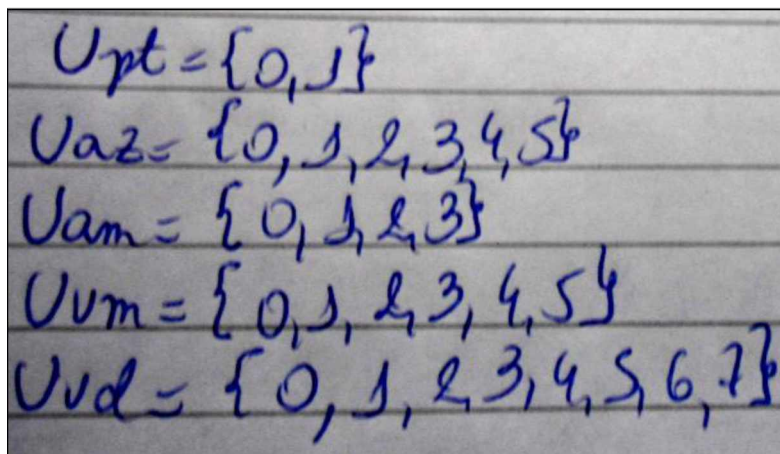 Upt = {0, 1}
Uaz = {0, 1, 2, 3, 4, 5}
Uam = {0, 1, 2, 3}
Uvm = {0, 1, 2, 3, 4, 5}
Uvd = {0, 1, 2, 3, 4, 5, 6, 7}